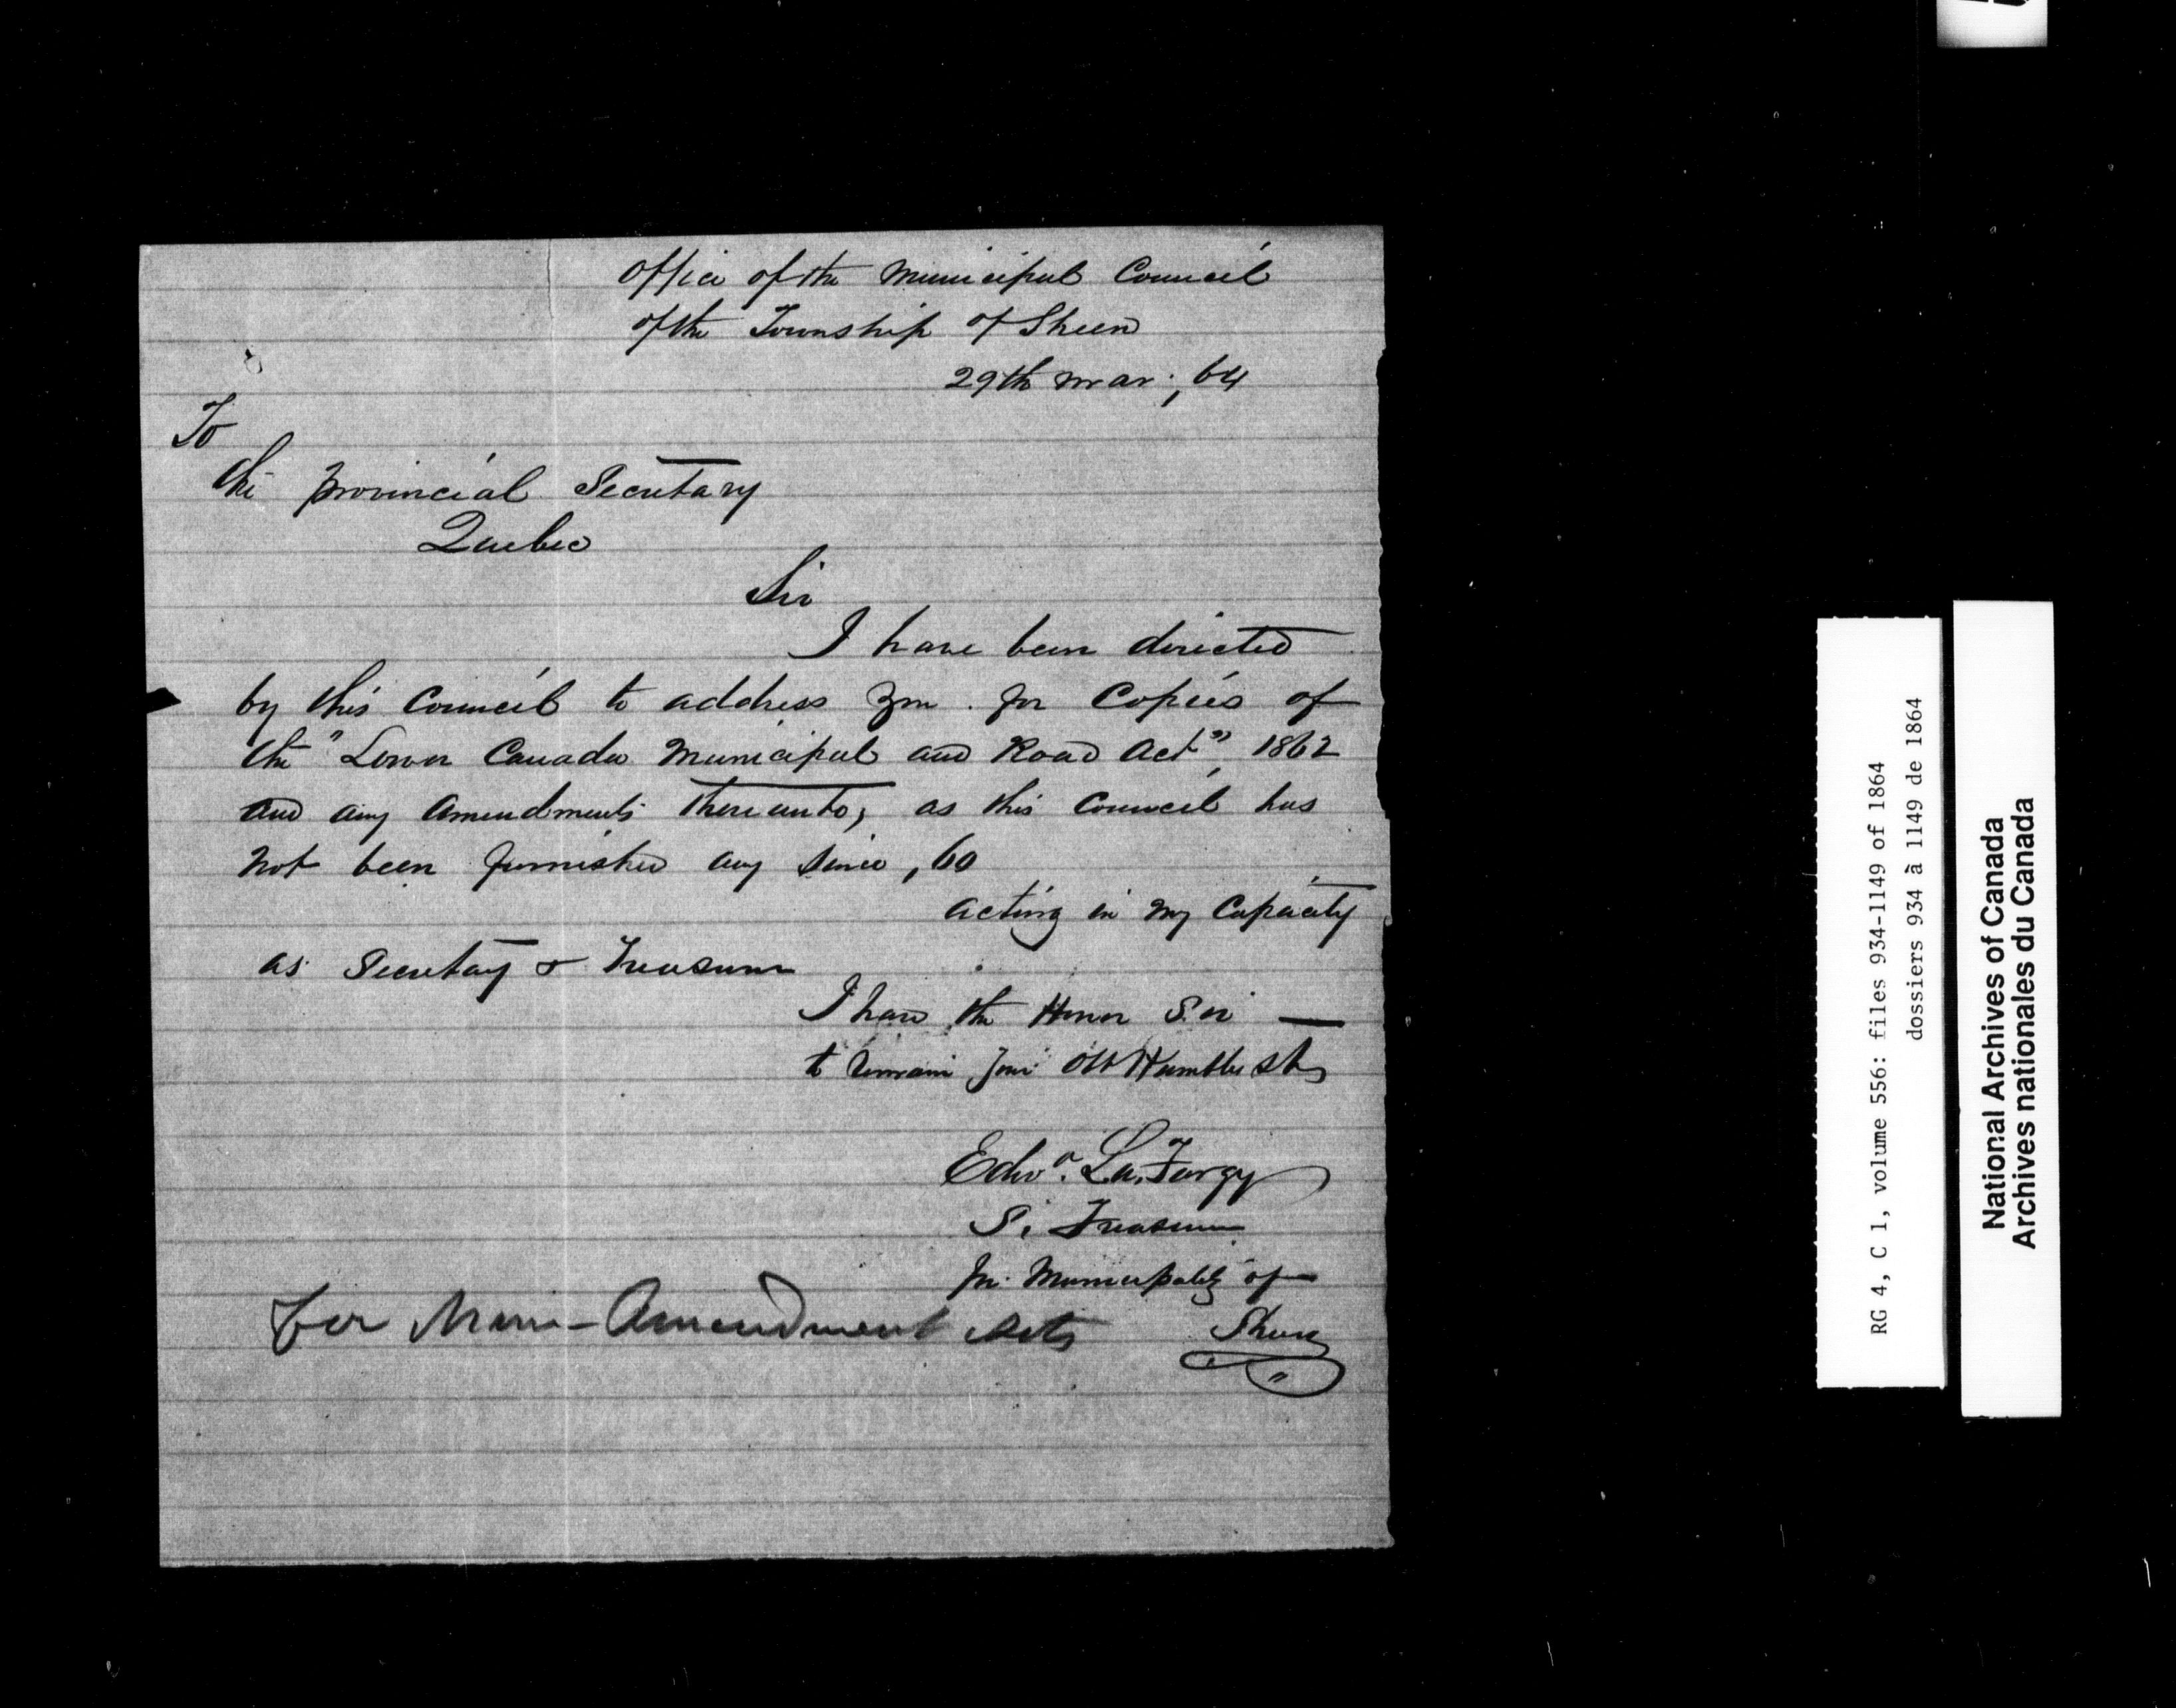 Office of the Municipal Council
of the Township of Sheen
29th Mar; 64
To
the Provincial Secretary
Quebec
Sir
I have been directed
by this Council to address you for Copies of
the "Lower Canada Municipal and Road Act", 1862
and any Amendments thereunto, as this Council has
not been furnished any since, 60
acting in my Capacity
as Secretary & Treasurer
I have the Honor Sir —
to remain your Obt Humble St
Edwd. LaFargy
S. Treasurer
Municipality of
Sheen
for Muni- Amendment Acts
RG 4, C 1, volume 556: files 934-1149 of 1864
dossiers 934 à 1149 de 1864
National Archives of Canada
Archives nationales du Canada